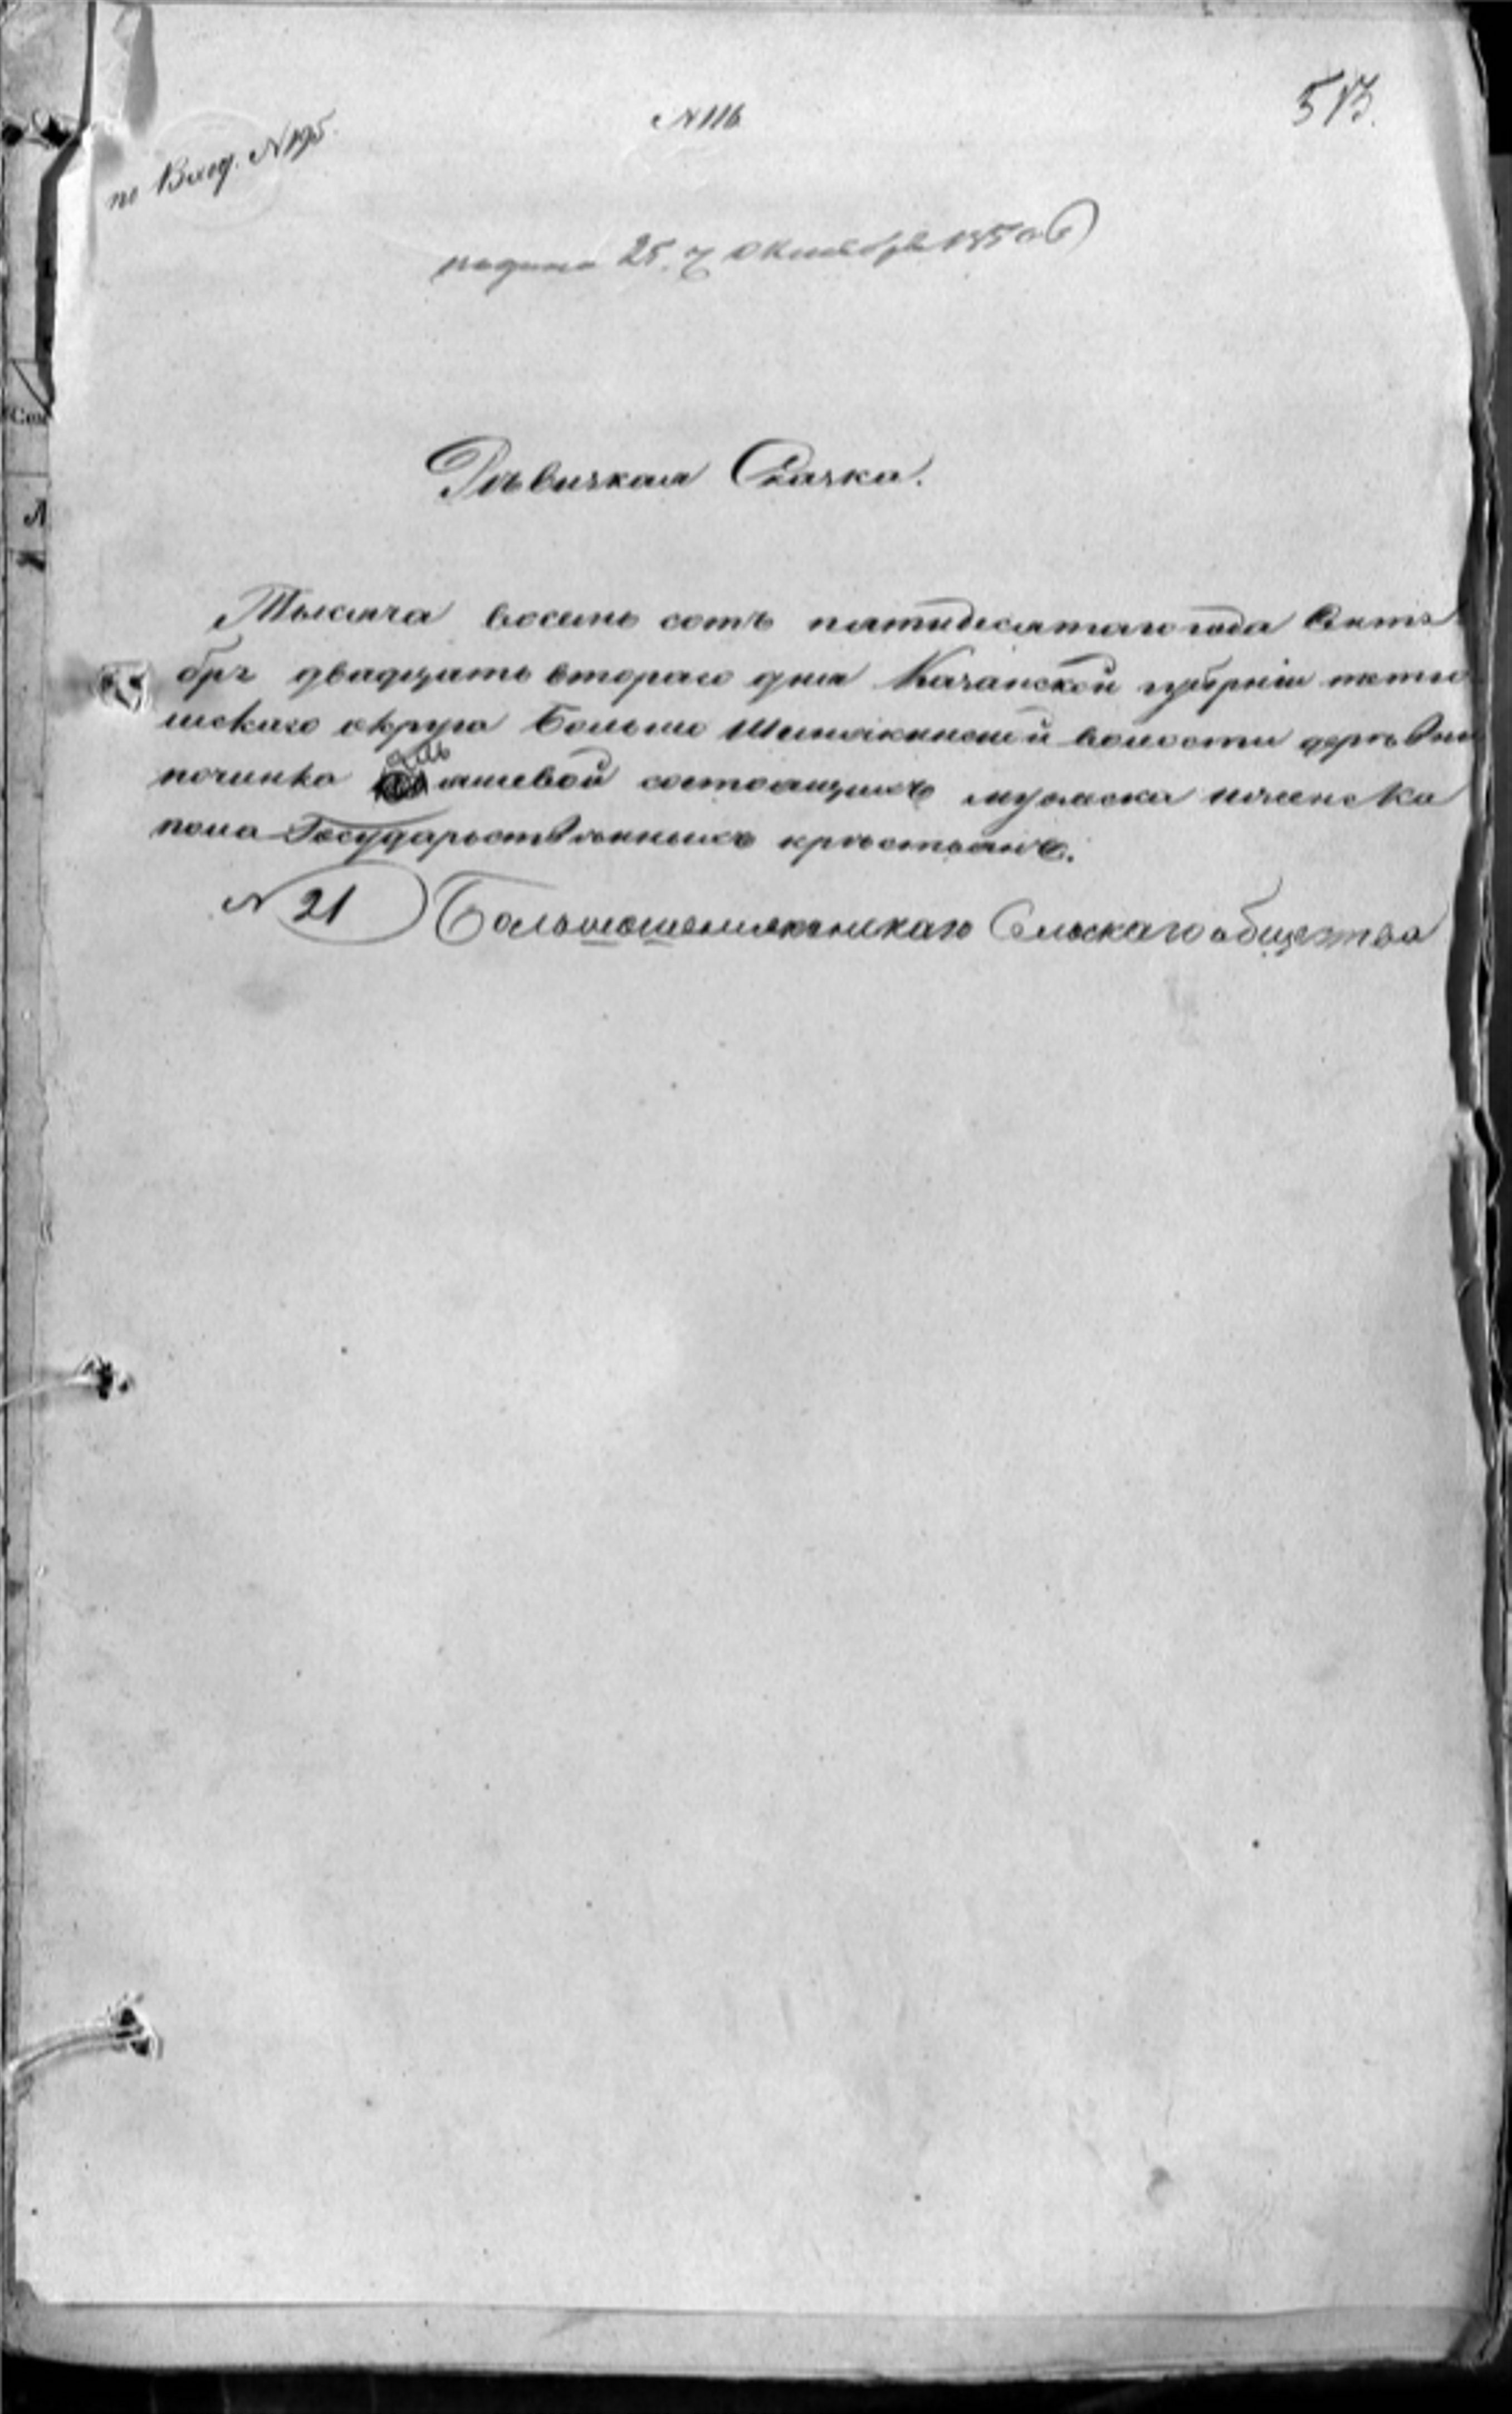 по Вход. №195.
№116
513.
подана 25. Октября 1850
Ревизская Сказка.
Тысяча восемь сотъ пятидесятаго года Октя
бря двадцать втораго дня Казанской губернiи тетю
шскаго округа Больше Шемякинской волости деревни
починка ашевой состоящихъ мужеска и женска
пола Государственныхъ крестьянъ.
№ 21 Большешемякинскаго Сельскаго общества